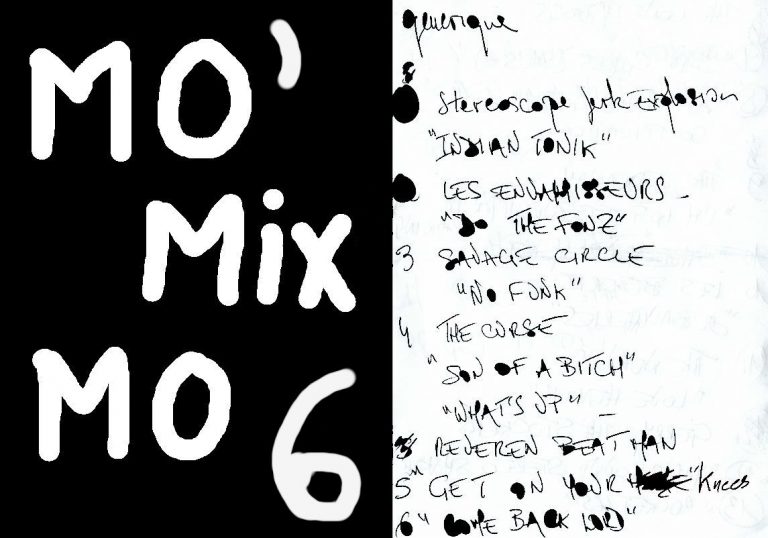 MO'
Mix
MO 6
generique
Stereoscope Jerk Explosion
"INDIAN TONIK"
LES ENVAHISSEURS -
"DO THE FONZ"
3 SAVAGE CIRCLE
"NO FUNK"
4 THE CURSE
"SON OF A BITCH"
"WHAT'S UP" -
REVEREN BEAT MAN
5 "GET ON YOUR "Knees
6 " COME BACK LORD"